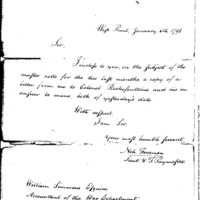 West Point, January 6th 1798
Sir,
I inclose to you, on the subject of the
muster rolls for the two last months a copy of a
letter from me to Colonel Rochefontaine and his
answer to mine, both of yesterday's date
With respect
I am Sir
your most humble servant
Nath. Freeman
Lieut & D Paymaster
William Simmons Esquire
Accountant of the War Department